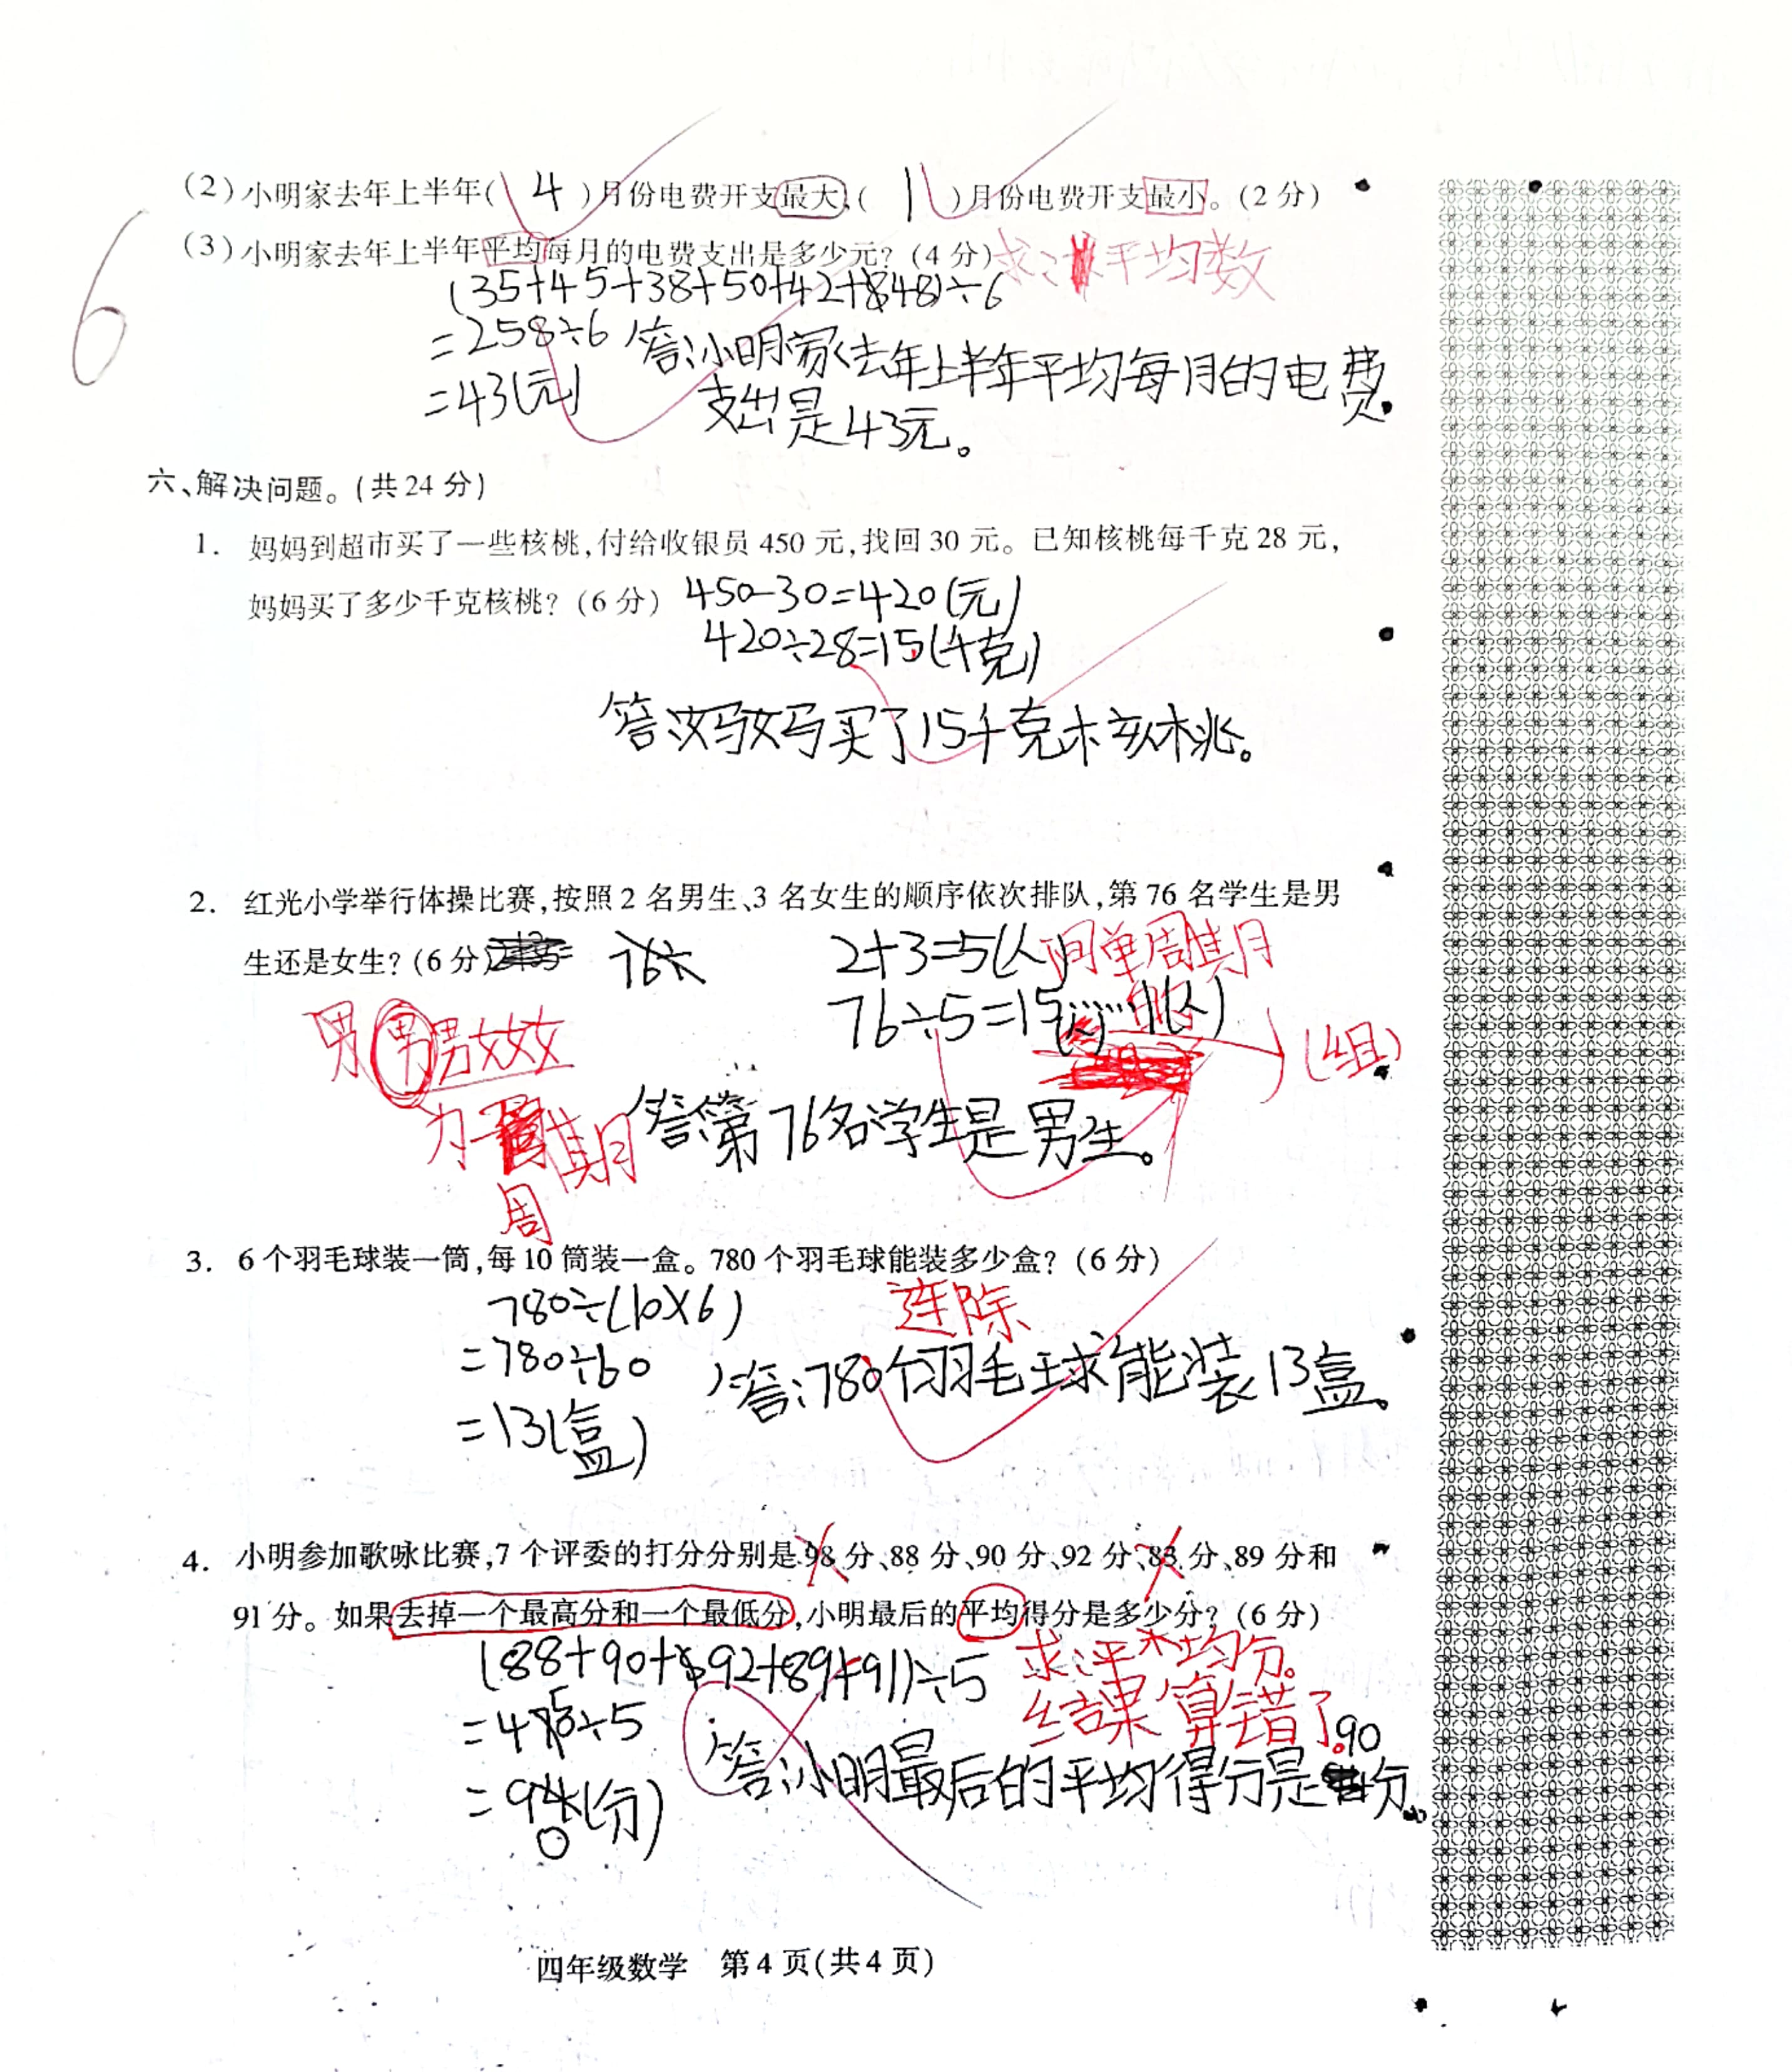 (2)小明家去年上半年( 4 )月份电费开支最大,( 1 )月份电费开支最小。(2分)
6
(3)小明家去年上半年平均每月的电费支出是多少元?(4分)
求:平均数
(35+45+38+50+42+48)÷6
=258÷6
=43(元)
答:小明家去年上半年平均每月的电费
支出是43元。
六、解决问题。(共24分)
1. 妈妈到超市买了一些核桃,付给收银员450元,找回30元。已知核桃每千克28元,
妈妈买了多少千克核桃?(6分)
450-30=420(元)
420÷28=15(千克)
答:妈妈买了15千克核桃。
2. 红光小学举行体操比赛,按照2名男生、3名女生的顺序依次排队,第76名学生是男
生还是女生?(6分)
76÷
2+3=5(人)
简单周期
76÷5=15……1(人)
(组)
男男男女女女
为一周期
周
答:第76名学生是男生。
3. 6个羽毛球装一筒,每10筒装一盒。780个羽毛球能装多少盒?(6分)
780÷(10×6)
连除
=780÷60
=13(盒)
答:780个羽毛球能装13盒。
4. 小明参加歌咏比赛,7个评委的打分分别是98分、88分、90分、92分、83分、89分和
91分。如果去掉一个最高分和一个最低分,小明最后的平均得分是多少分?(6分)
(88+90+92+89+91)÷5
求:平均分。
结果算错了。
=450÷5
=90(分)
答:小明最后的平均得分是90分。
四年级数学 第4页(共4页)